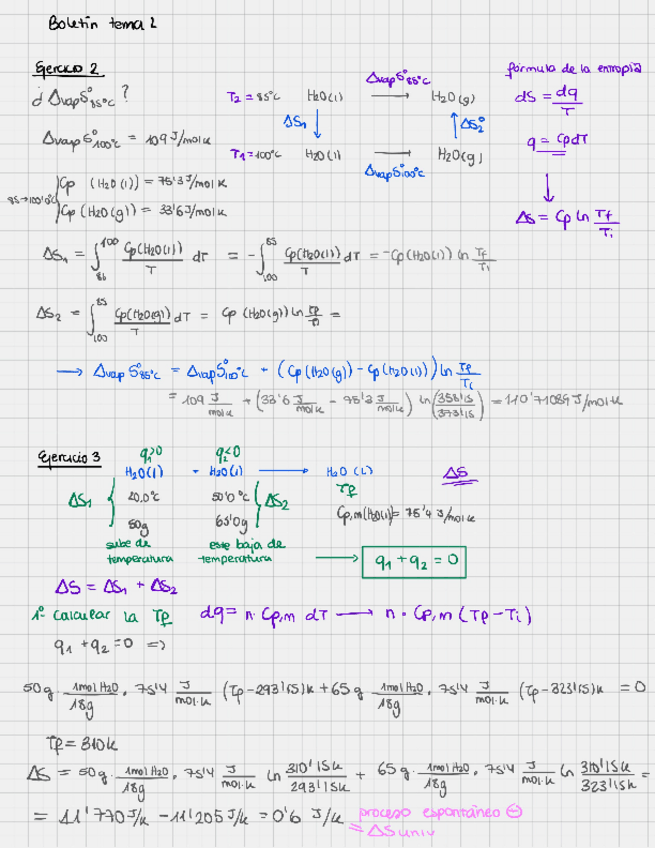 Boletín tema 2
Ejercicio 2
fórmula de la entropía
¿ ΔvapS°85°C ?
T2 = 85°C H2O(l) ⟶ ΔvapS°85°C H2O(g)
dS = dq/T
ΔS1 ↓ ↑ ΔS°2
ΔvapS°100°C = 109 J/mol·K
q = CpdT
T1 = 100°C H2O(l) ⟶ ΔvapS°100°C H2O(g)
85→100°C
Cp (H2O(l)) = 75'3 J/mol K
Cp (H2O(g)) = 33'6 J/mol K
↓
ΔS = Cp ln Tf/Ti
ΔS1 = ∫85^100 Cp(H2O(l))/T dT = -∫100^85 Cp(H2O(l))/T dT = -Cp(H2O(l)) ln Tf/Ti
ΔS2 = ∫100^85 Cp(H2O(g))/T dT = Cp (H2O(g)) ln Tf/Ti =
⟶ ΔvapS°85°C = ΔvapS°100°C + (Cp(H2O(g)) - Cp(H2O(l))) ln Tf/Ti
= 109 J/mol·K + (33'6 J/mol·K - 75'3 J/mol·K) ln(358'15/373'15) = 110'71089 J/mol·K
Ejercicio 3
q1>0 q2<0
H2O(l) + H2O(l) ⟶ H2O (L) ΔS
ΔS1 20,0°C 50'0°C ΔS2 Tf
50g 65'0g Cp,m(H2O(l)) = 75'4 J/mol K
sube de temperatura
este baja de temperatura
⟶ q1 + q2 = 0
ΔS = ΔS1 + ΔS2
1º Calcular la Tf dq = n · Cp,m dT ⟶ n · Cp,m (Tf - Ti)
q1 + q2 = 0 =>
50g · 1mol H2O/18g · 75'4 J/mol·K (Tf - 293'15)K + 65g · 1mol H2O/18g · 75'4 J/mol·K (Tf - 323'15)K = 0
Tf = 310K
ΔS = 50g · 1mol H2O/18g · 75'4 J/mol·K ln 310'15K/293'15K + 65g · 1mol H2O/18g · 75'4 J/mol·K ln 310'15K/323'15K =
= 11'770 J/K - 11'205 J/K = 0'6 J/K proceso espontáneo ⊖
= ΔSuniv